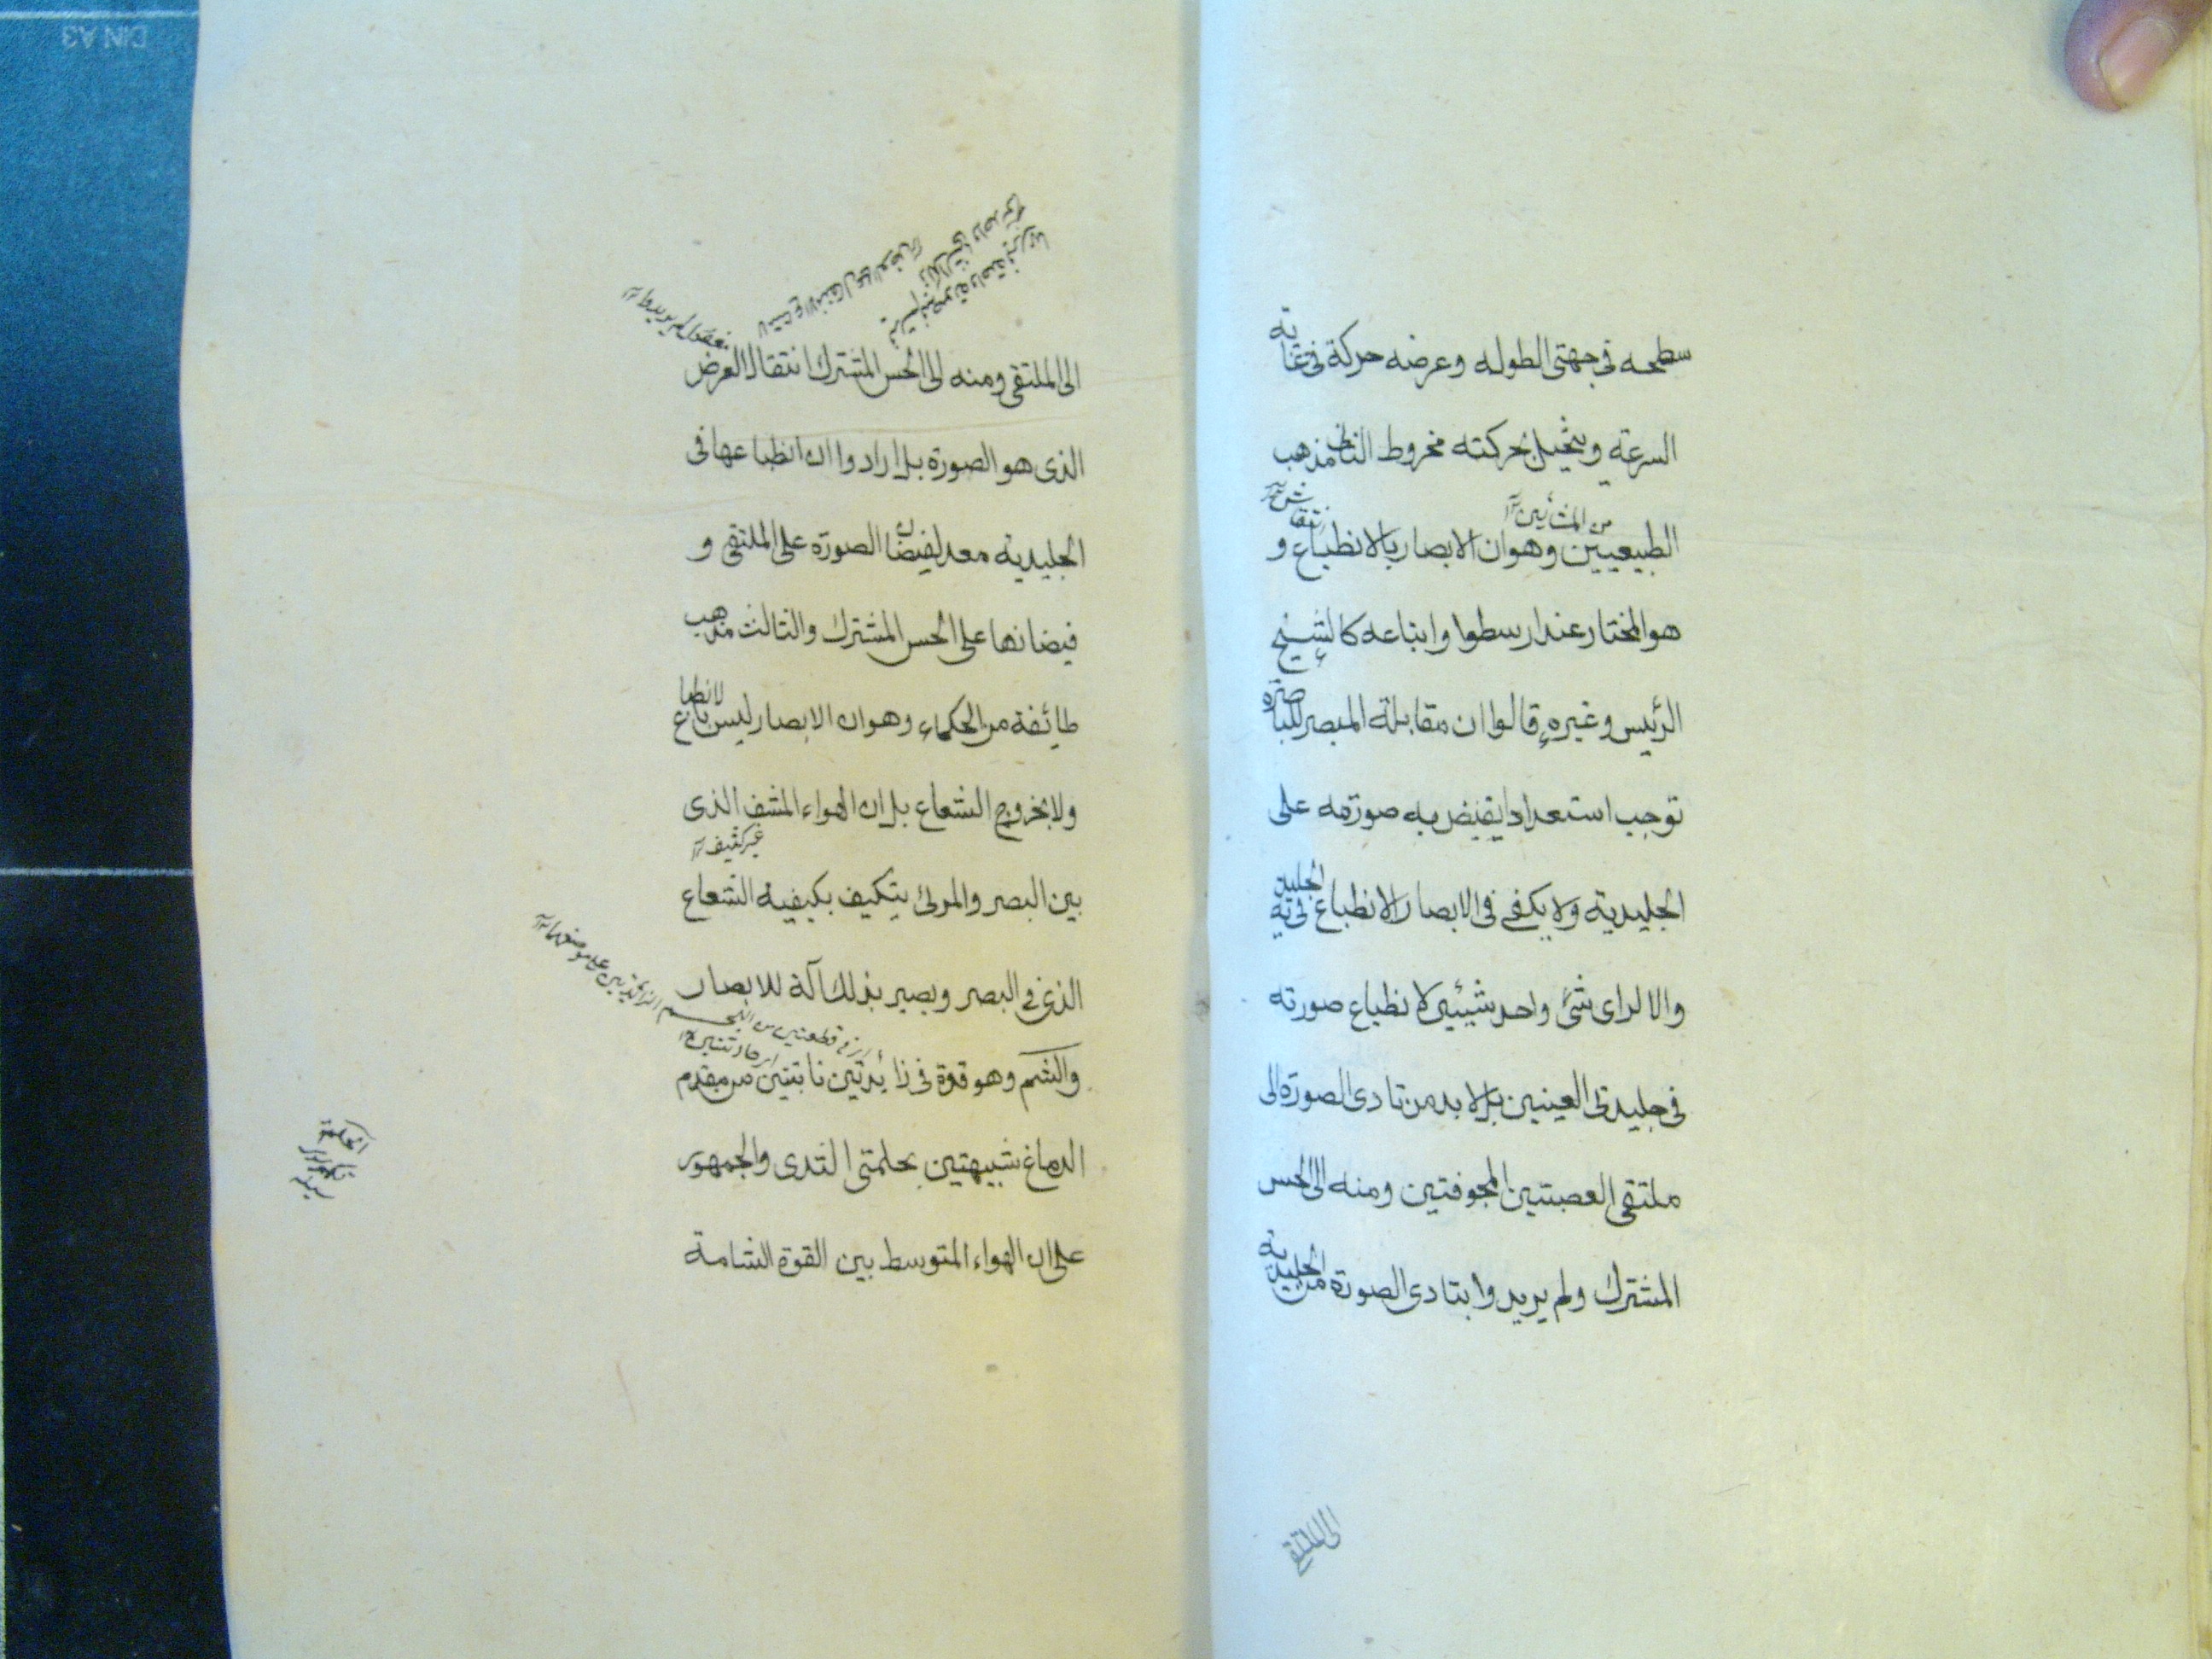 سطحه فى جهتى الطوله وعرضه حركة فى غاية
السرعة ويتخيل بحركته مخروط الثانى مذهب
من المشائين
الطبيعيين وهو ان الابصار بالانطباع و
هو المختار عند ارسطوا واتباعه كالشيخ
الرئيس وغيره قالوا ان مقابلة المبصر للباصرة
توجب استعدادا يفيض به صورته على
الجليدية ولا يكفى فى الابصار الانطباع فى الجليدية
والا لراى شئ واحد شيئين لانطباع صورته
فى جليدتى العينين بل لا بد من تادى الصورة الى
ملتقى العصبتين المجوفتين ومنه الى الحس
المشترك ولم يريدوا بتادى الصورة من الجليدية
الى الملتقى
الى الملتقى ومنه الى الحس المشترك انتقال العرض
الذى هو الصورة بل ارادوا ان انطباعها فى
الجليدية معد لفيضان الصورة على الملتقى و
فيضانها على الحس المشترك والثالث مذهب
طائفة من الحكماء وهو ان الابصار ليس بالانطباع
ولا بخروج الشعاع بل ان الهواء المشف الذى
غير كثيف
بين البصر والمرئ يتكيف بكيفية الشعاع
الذى فى البصر ويصير بذلك آلة للابصار
والشم وهو قوة فى زائدتين نابتتين من مقدم
الدماغ شبيهتين بحلمتى الثدى والجمهور
على ان الهواء المتوسط بين القوة الشامة